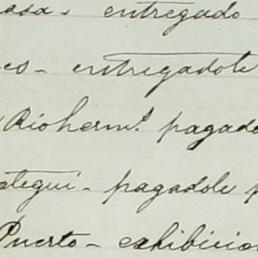 casa. entregado
es- entregadole
Riohermd. pagado
ategui- pagadole p
Puerto- exhibicion